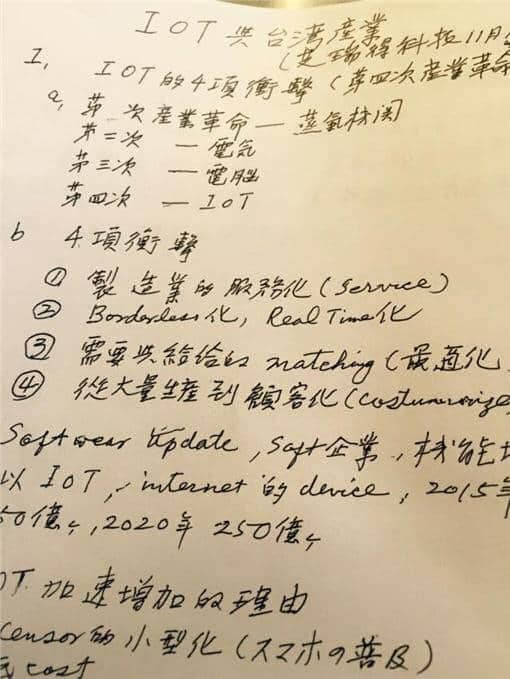 IOT 與台湾產業
(芝瑞得科技11月
I, IOT的4項衝擊 (第四次產業革命
a, 第一次產業革命 — 蒸氣机関
第二次 — 電気
第三次 — 電脳
第四次 — IOT
b 4項衝擊
① 製造業的服務化 (Service)
② Borderless化, Real Time化
③ 需要與給给的 matching (最適化
④ 從大量生產到顧客化 (Costumerize
Softwear Update, Soft企業, 机能
以 IOT, internet的device, 2015年
50億ケ, 2020年 250億ケ
OT 加速增加的理由
censor的小型化 (スマホの普及)
cost